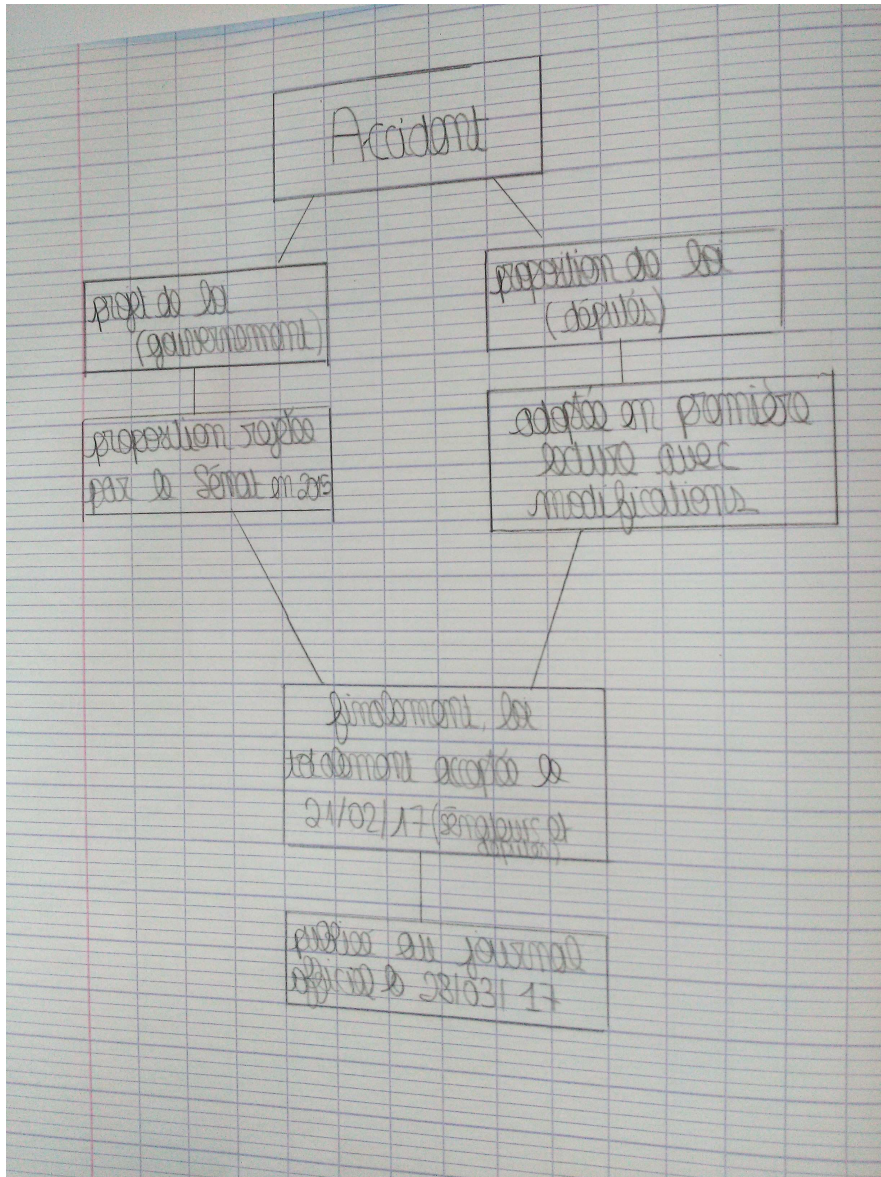 Accident
projet de loi
(gouvernement)
proposition de loi
(députés)
proposition rejetée
par le Sénat en 2015
adoptée en première
lecture avec
modifications
finalement, loi
totalement acceptée le
21/02/17 (sénateurs et
députés)
publiée au journal
officiel le 28/03/17